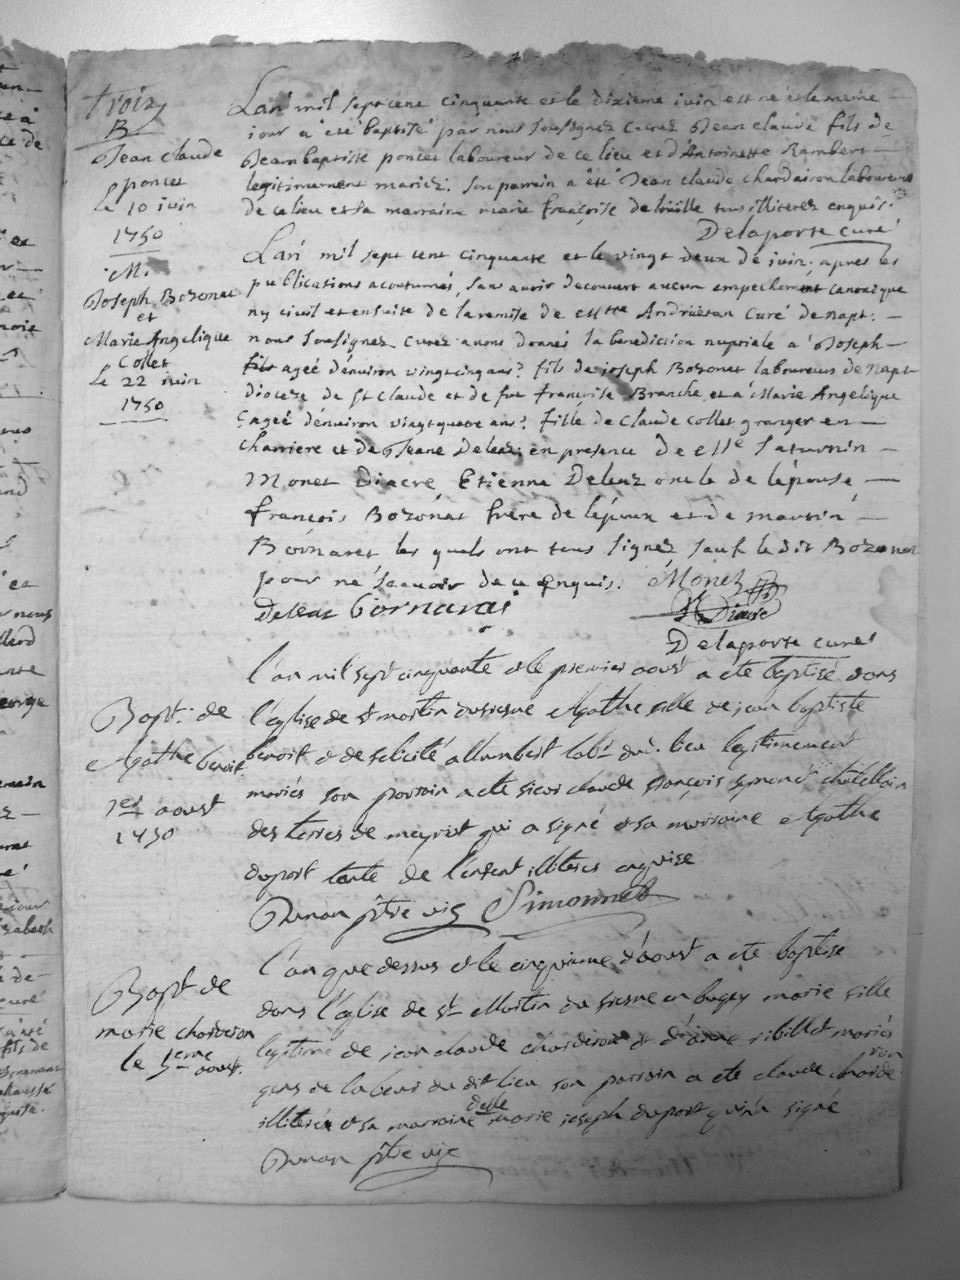 trois
B
Jean claude
poncet
Le 10 juin
1750
L'an mil sept cent cinquante et le dixieme juin est né et le meme
jour a été baptisé par nous soussignez curez Jean claude fils de
Jean baptiste poncet laboureur de ce lieu et d'Antoinette Rambert
legitimement mariez. son parrain a été Jean claude chardairon laboureur
de ce lieu et sa marraine marie françoise tous illiterez enquis.
Delaporte curé
M.
Joseph Bozonet
et
Marie Angelique
Collet
Le 22 juin
1750
L'an mil sept cent cinquante et le vingt deux de juin. apres les
publications acoutumés, sans avoir decouvert aucun empechement canonique
ny civil et ensuite de la remise de Curé de napt.
nous soussignez Curez avons donnés la benediction nuptiale a Joseph
fils ageé d'environ vingt cinq ans? fils de joseph Bozonet laboureur de napt
dioceze de St Claude et de françoise Branche, et a Marie Angelique
ageé d'environ vingt quatre ans? fille de Claude Collet granger en
charriere et de Jeane Deleaz en presence de Saturnin
Monet Diacre Etienne Deleaz oncle de l'épouse
françois Bozonat frère de l'époux et de martin
Bornaret les quels ont tous signez sauf le dit Bozonat
pour ne sçavoir de ce enquis. Monet
Deleaz Gornarat Diacre
Delaporte curet
Bapt. de
Agathe benoit
1er aoust
1750
l'an mil sept cinquante et le premier aoust a ete baptisé dans
l'eglise de st martin dufresne Agathe fille de jean baptiste
benoit et de felicité allumbert lab. dud. lieu legitimement
mariés son parrain a eté sieur claude françois simonet chatellain
des terres de meyriat qui a signé et sa marraine Agathe
duport tante de l'enfant illiteres enquise
Dunan ptre vic Simonnet
Bapt de
marie chardeiron
le 5eme aoust.
l'an que dessus et le cinquieme d'aoust a ete baptisé
dans l'eglise de st Martin du fresne en bugey marie fille
legitime de jean claude chardeiron et d'anne ribillet mariés
gens de labeur du dit lieu son parrain a ete claude charde
ron
illiteré et sa marraine delle marie joseph duport qui a signé
Dunan ptre vic